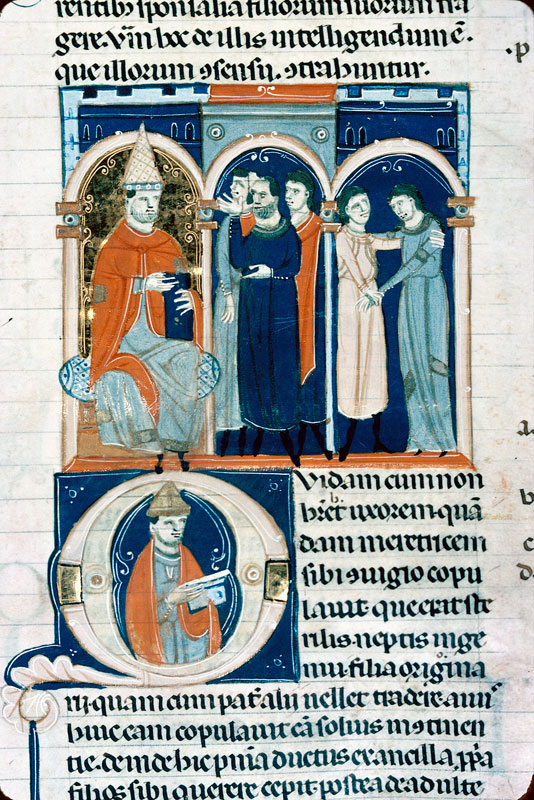 rentibꝫ sponsalia filiorum suorum tra
gere. Vn̄ hoc de illis intelligendum ē.
que illorum ꝯsensu ꝯtrahuntur.
Quidam cum non
h̄ret uxorem. quā
dam meretricem
sibi ꝯiugio copu
lauit que erat ste
rilis. neptis inge
nui. filia origina
rij. quam cum pat̄ alij uellet tradere. auus
huic eam copulauit cā solius inꝯtinen
tie. deinde hic pn̄ia ductus ex ancilla ꝓpa
filios sibi querere cepit. postea de adulte